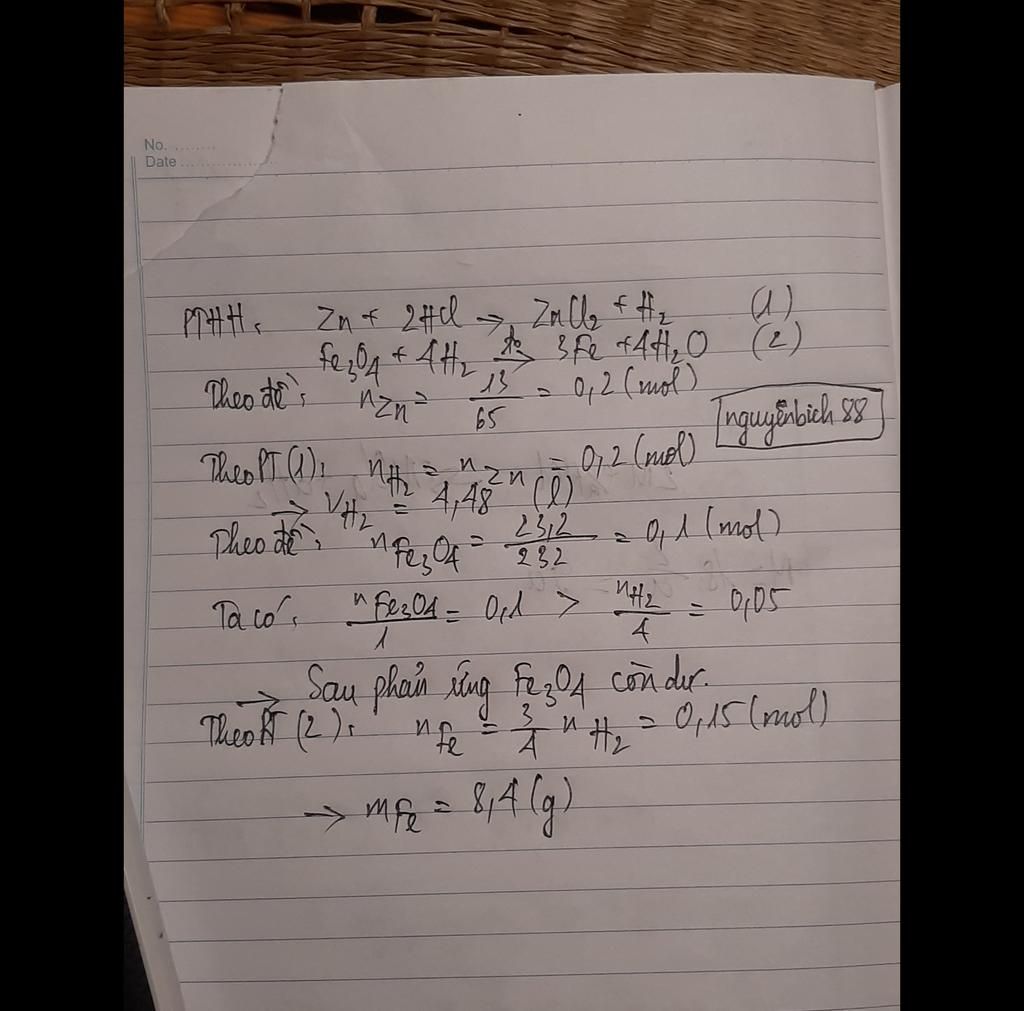 No. ........
Date ..................
PTHH: Zn + 2HCl → ZnCl₂ + H₂ (1)
Fe₃O₄ + 4H₂ →(t°) 3Fe + 4H₂O (2)
Theo đề: nZn = 13/65 = 0,2 (mol)
nguyễnbich 88
Theo PT (1): nH₂ = nZn = 0,2 (mol)
→ VH₂ = 4,48 (l)
Theo đề: nFe₃O₄ = 23,2/232 = 0,1 (mol)
Ta có: nFe₃O₄/1 = 0,1 > nH₂/4 = 0,05
→ Sau phản ứng Fe₃O₄ còn dư.
Theo PT (2): nFe = 3/4 nH₂ = 0,15 (mol)
→ mFe = 8,4 (g)